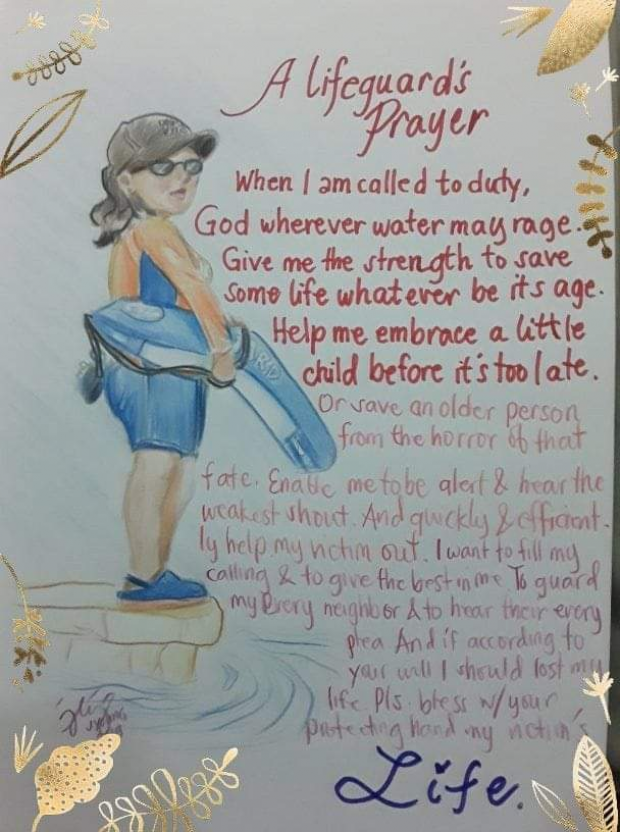 A lifeguard's
Prayer
When I am called to duty,
God wherever water may rage.
Give me the strength to save
some life whatever be its age.
Help me embrace a little
child before it's too late.
Or save an older person
from the horror of that
fate. Enable me to be alert & hear the
weakest shout. And quickly & efficient-
ly help my victim out. I want to fill my
calling & to give the best in me To guard
my Every neighbor & to hear their every
plea And if according to
your will I should lost my
life. Pls. bless w/ your
protecting hand my victim's
Life.